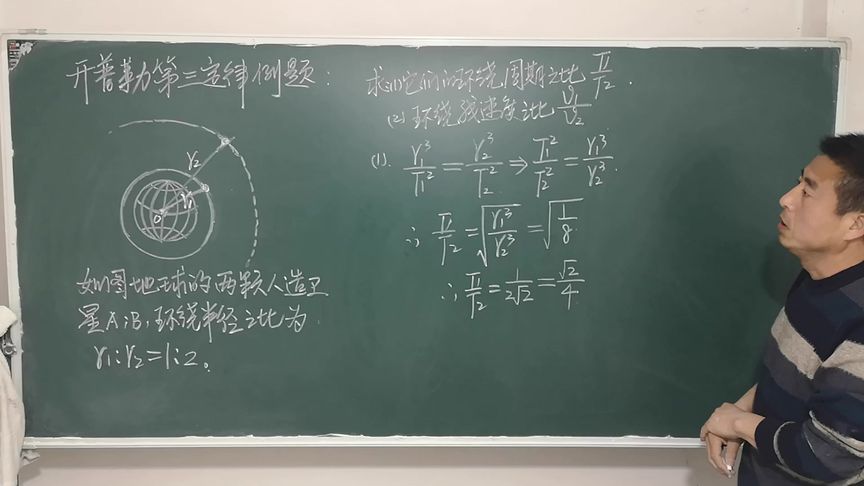 开普勒力第三定律例题：
r₂
r₁
O
如图地球的两颗人造卫
星A、B，环绕半径之比为
r₁:r₂=1:2。
求:(1)它们的环绕周期之比 T₁/T₂.
(2) 环绕线速度之比 v₁/v₂
(1). r₁³/T₁² = r₂³/T₂² ⇒ T₁²/T₂² = r₁³/r₂³.
∴ T₁/T₂ = √(r₁³/r₂³) = √(1/8)
∴ T₁/T₂ = 1/(2√2) = √2/4